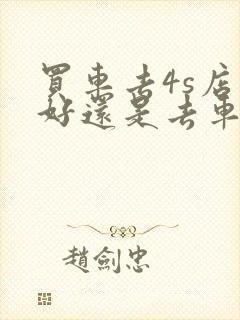 買車去4s店
好還是去車
趙劍忠